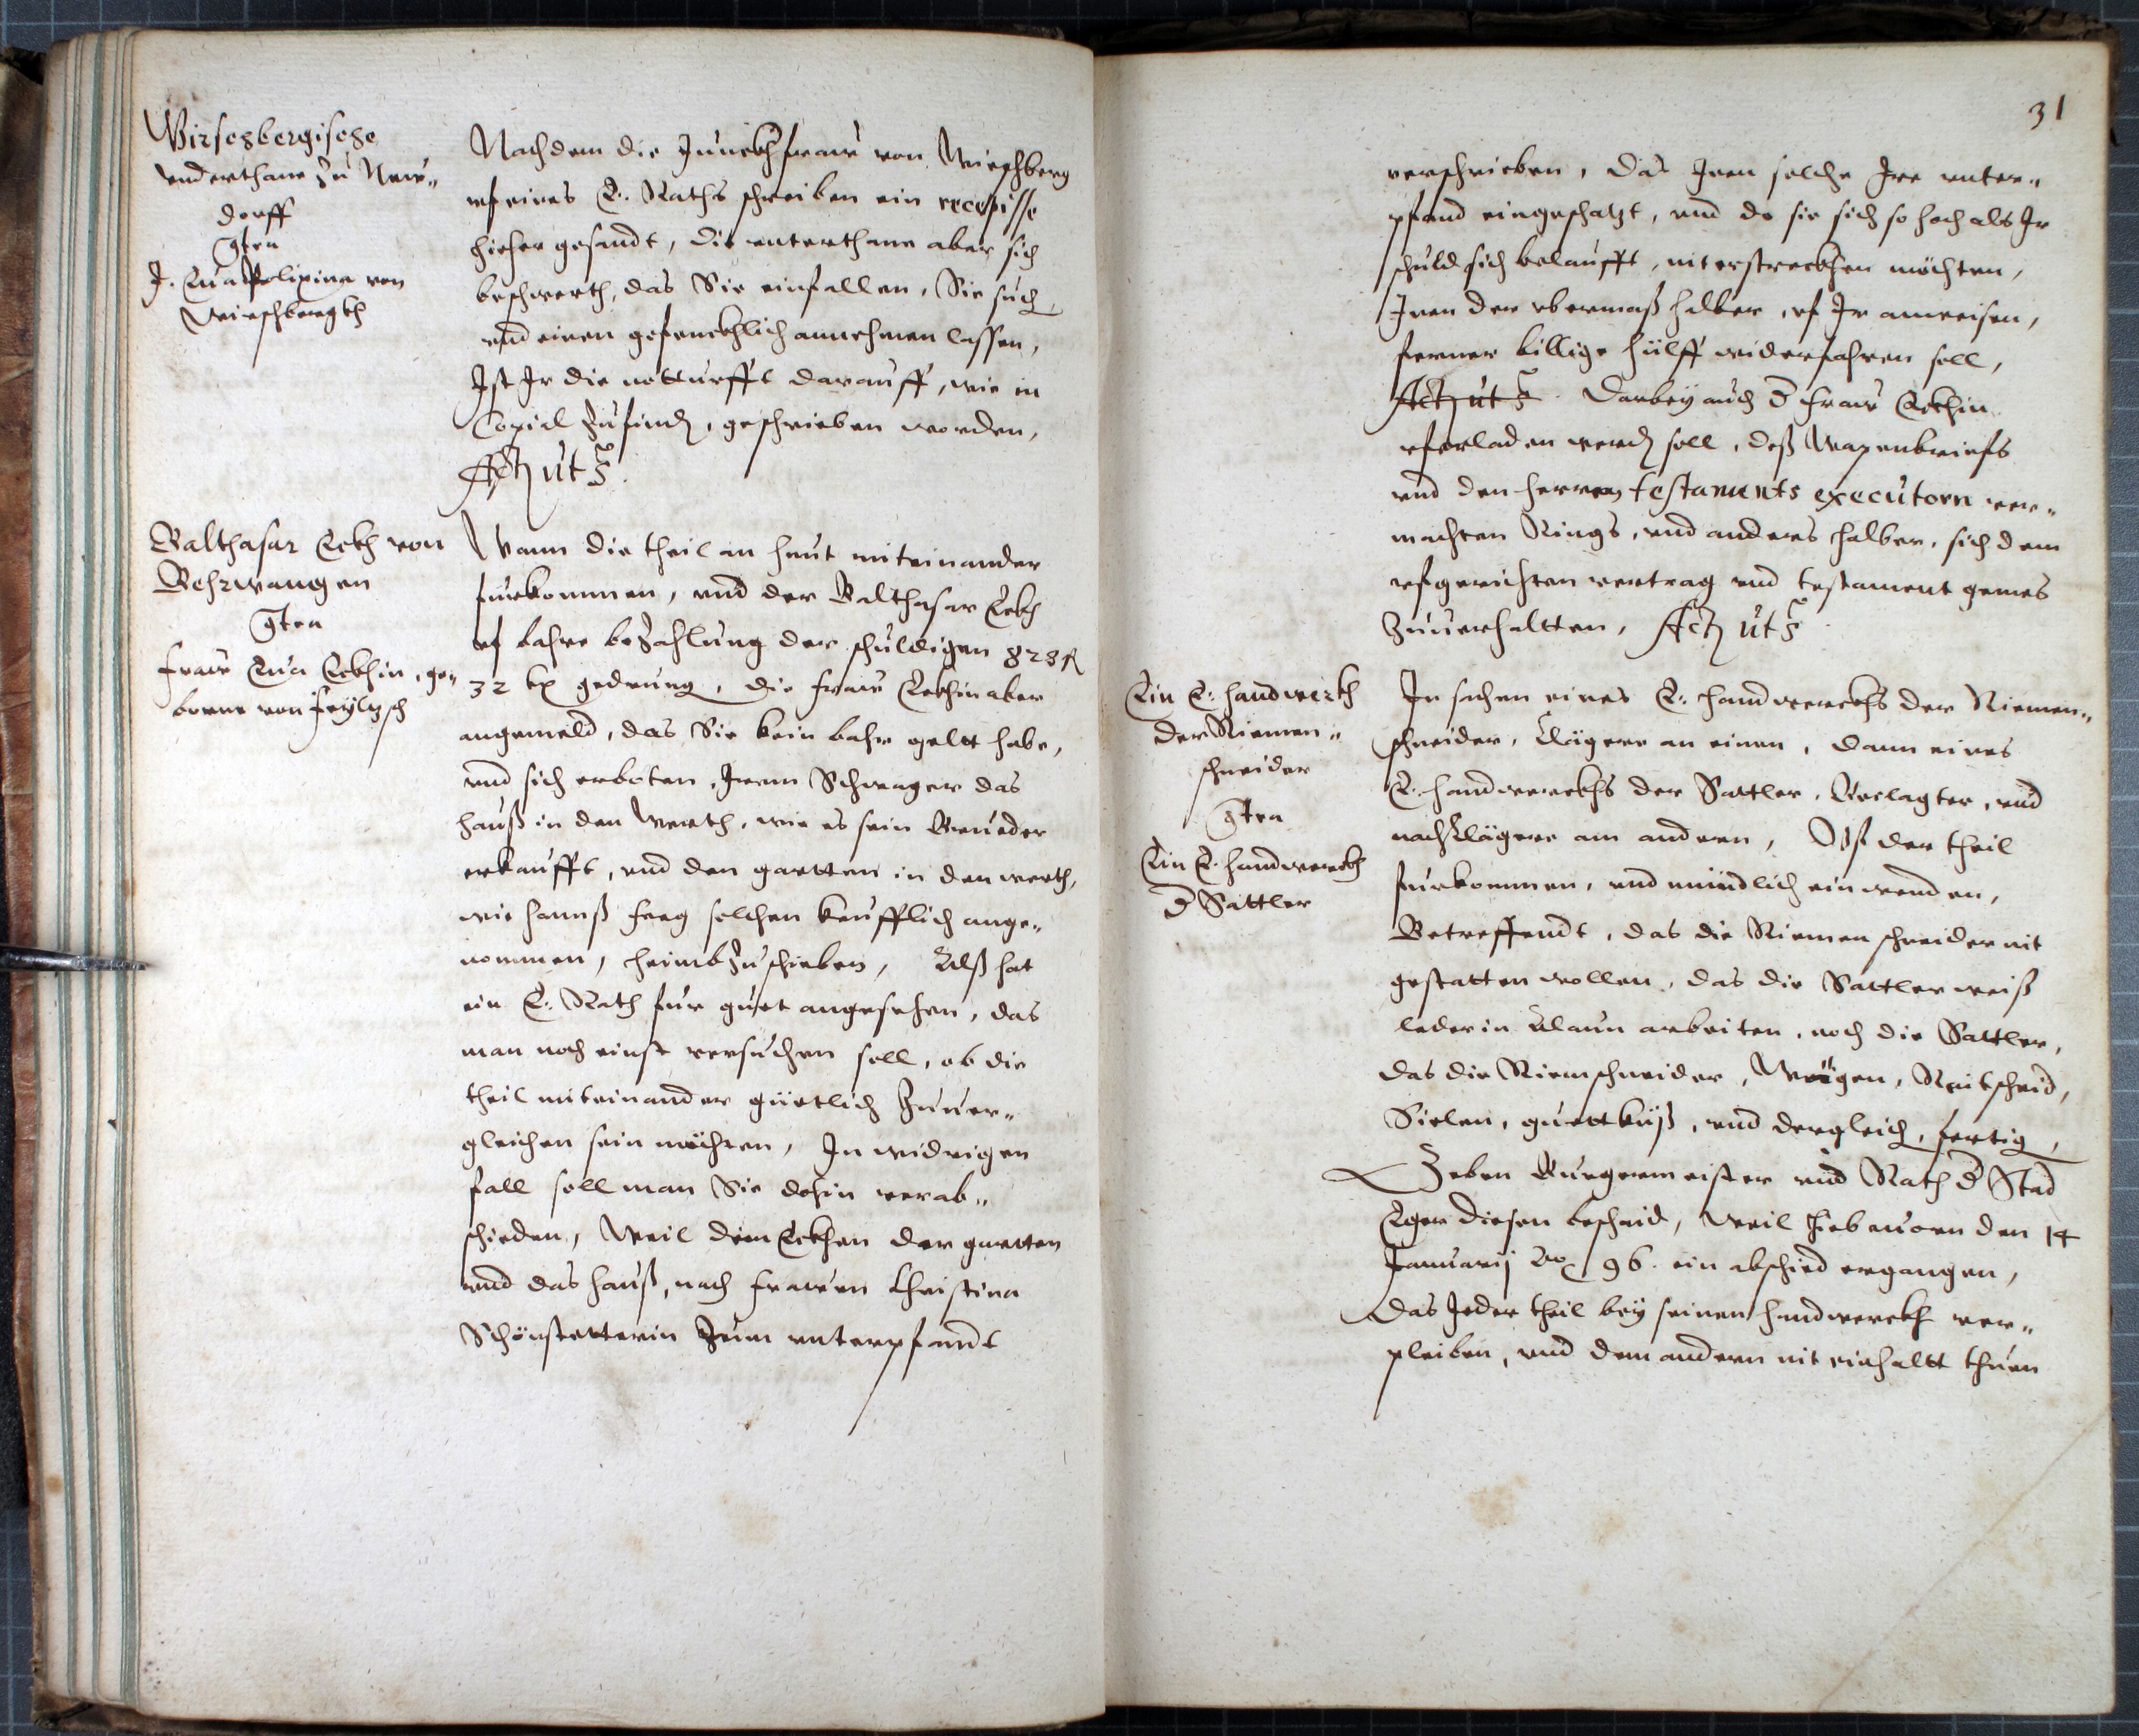 Wirschbergische
vnderthane zu New„
dorff
gten
J. Eua Polixina von
Wirschbergkh
Nachdem die Junckhfraw von Wirschberg
vf eines E. Raths schreiben ein recepisse
hieher gesandt, die vnterthane aber sich
beschwerth, das Sie einfallen, Sie such
vnd einen gefenckhlich annehmen lassen,
Ist Ir die notturfft darauff, wie in
Copial zufinden, geschrieben worden,
Act ut s
Balthasar Eckh von
Behrwangen
gten
Fraw Eua Eckhin, ge„
borne von Feylzsch
Wann die theil an heut miteinander
furkommen, vnd der Balthasar Eckh
vf bahre bezahlung der schuldigen 823 fl
32 kx gedrung, die Fraw Eckhin aber
angemeld, das Sie kein bahr geltt habe,
vnd sich erboten, Irem Schwager das
hauß in den werth, wie es sein Brueder
erkaufft, vnd den gartten in den werth,
wie hannß feeg solchen keufflich ange„
nommen, heimbzuschieben, Alß hat
ein E. Rath fur guet angesehen, das
man noch einst versuchen soll, ob die
theil miteinander güetlich zuuer„
gleichen sein möchten, In widrigen
fall soll man Sie dohin verab„
schieden, Weil dem Eckhen der gartten
vnd das hauß, nach Frawen Christina
Schönstetterin zum vnterpfandt
31
verschrieben, das Iren solche Ire vnter„
pfand eingeschatzt, vnd do sie sich so hoch als Ir
schuld sich belaufft, nit erstreckhen möchten,
Iren der vbermaß halber, vf Ir anweisen,
ferner billige hülff widerfahren soll,
Act ut s. Darbey auch d Fraw Eckhin
erforladen werden soll, deß Wapenbriefs
vnd den herren testaments executorn ver„
machten Rings, vnd anders halber, sich dem
vfgerichten vertrag vnd testament gemes
Zuuerhaltten, Act ut s
Ein E. handwerckh
der Riemen„
schneider
gten
Ein E. handwerckh
d Sattler
In sachen eines E. handwerckhs der Riemen„
schneider, Clägere an einen, dann eines
E. handwerckhs der Sattler, Beclagter, vnd
nachklägere am andern, Ist der theil
furkommen, vnd mündlich einwenden,
Betreffendt, das die Riemenschneider nit
gestatten wollen, das die Sattler weiß
leder in Alaun arbeiten, noch die Sattler,
das die Riemschneider, Wägen, Reitscheid,
Sielen, guettküß, vnd dergleich, fertig,
Geben Burgermeister vnd Rath d Stad
Eger diesen bescheid, Weil hiebeuorn den 14
Januarij Ao 96. ein abschied ergangen,
Das Jeder theil bey seinen handwerckh ver„
pleiben, vnd dem andern nit einhaltt thuen